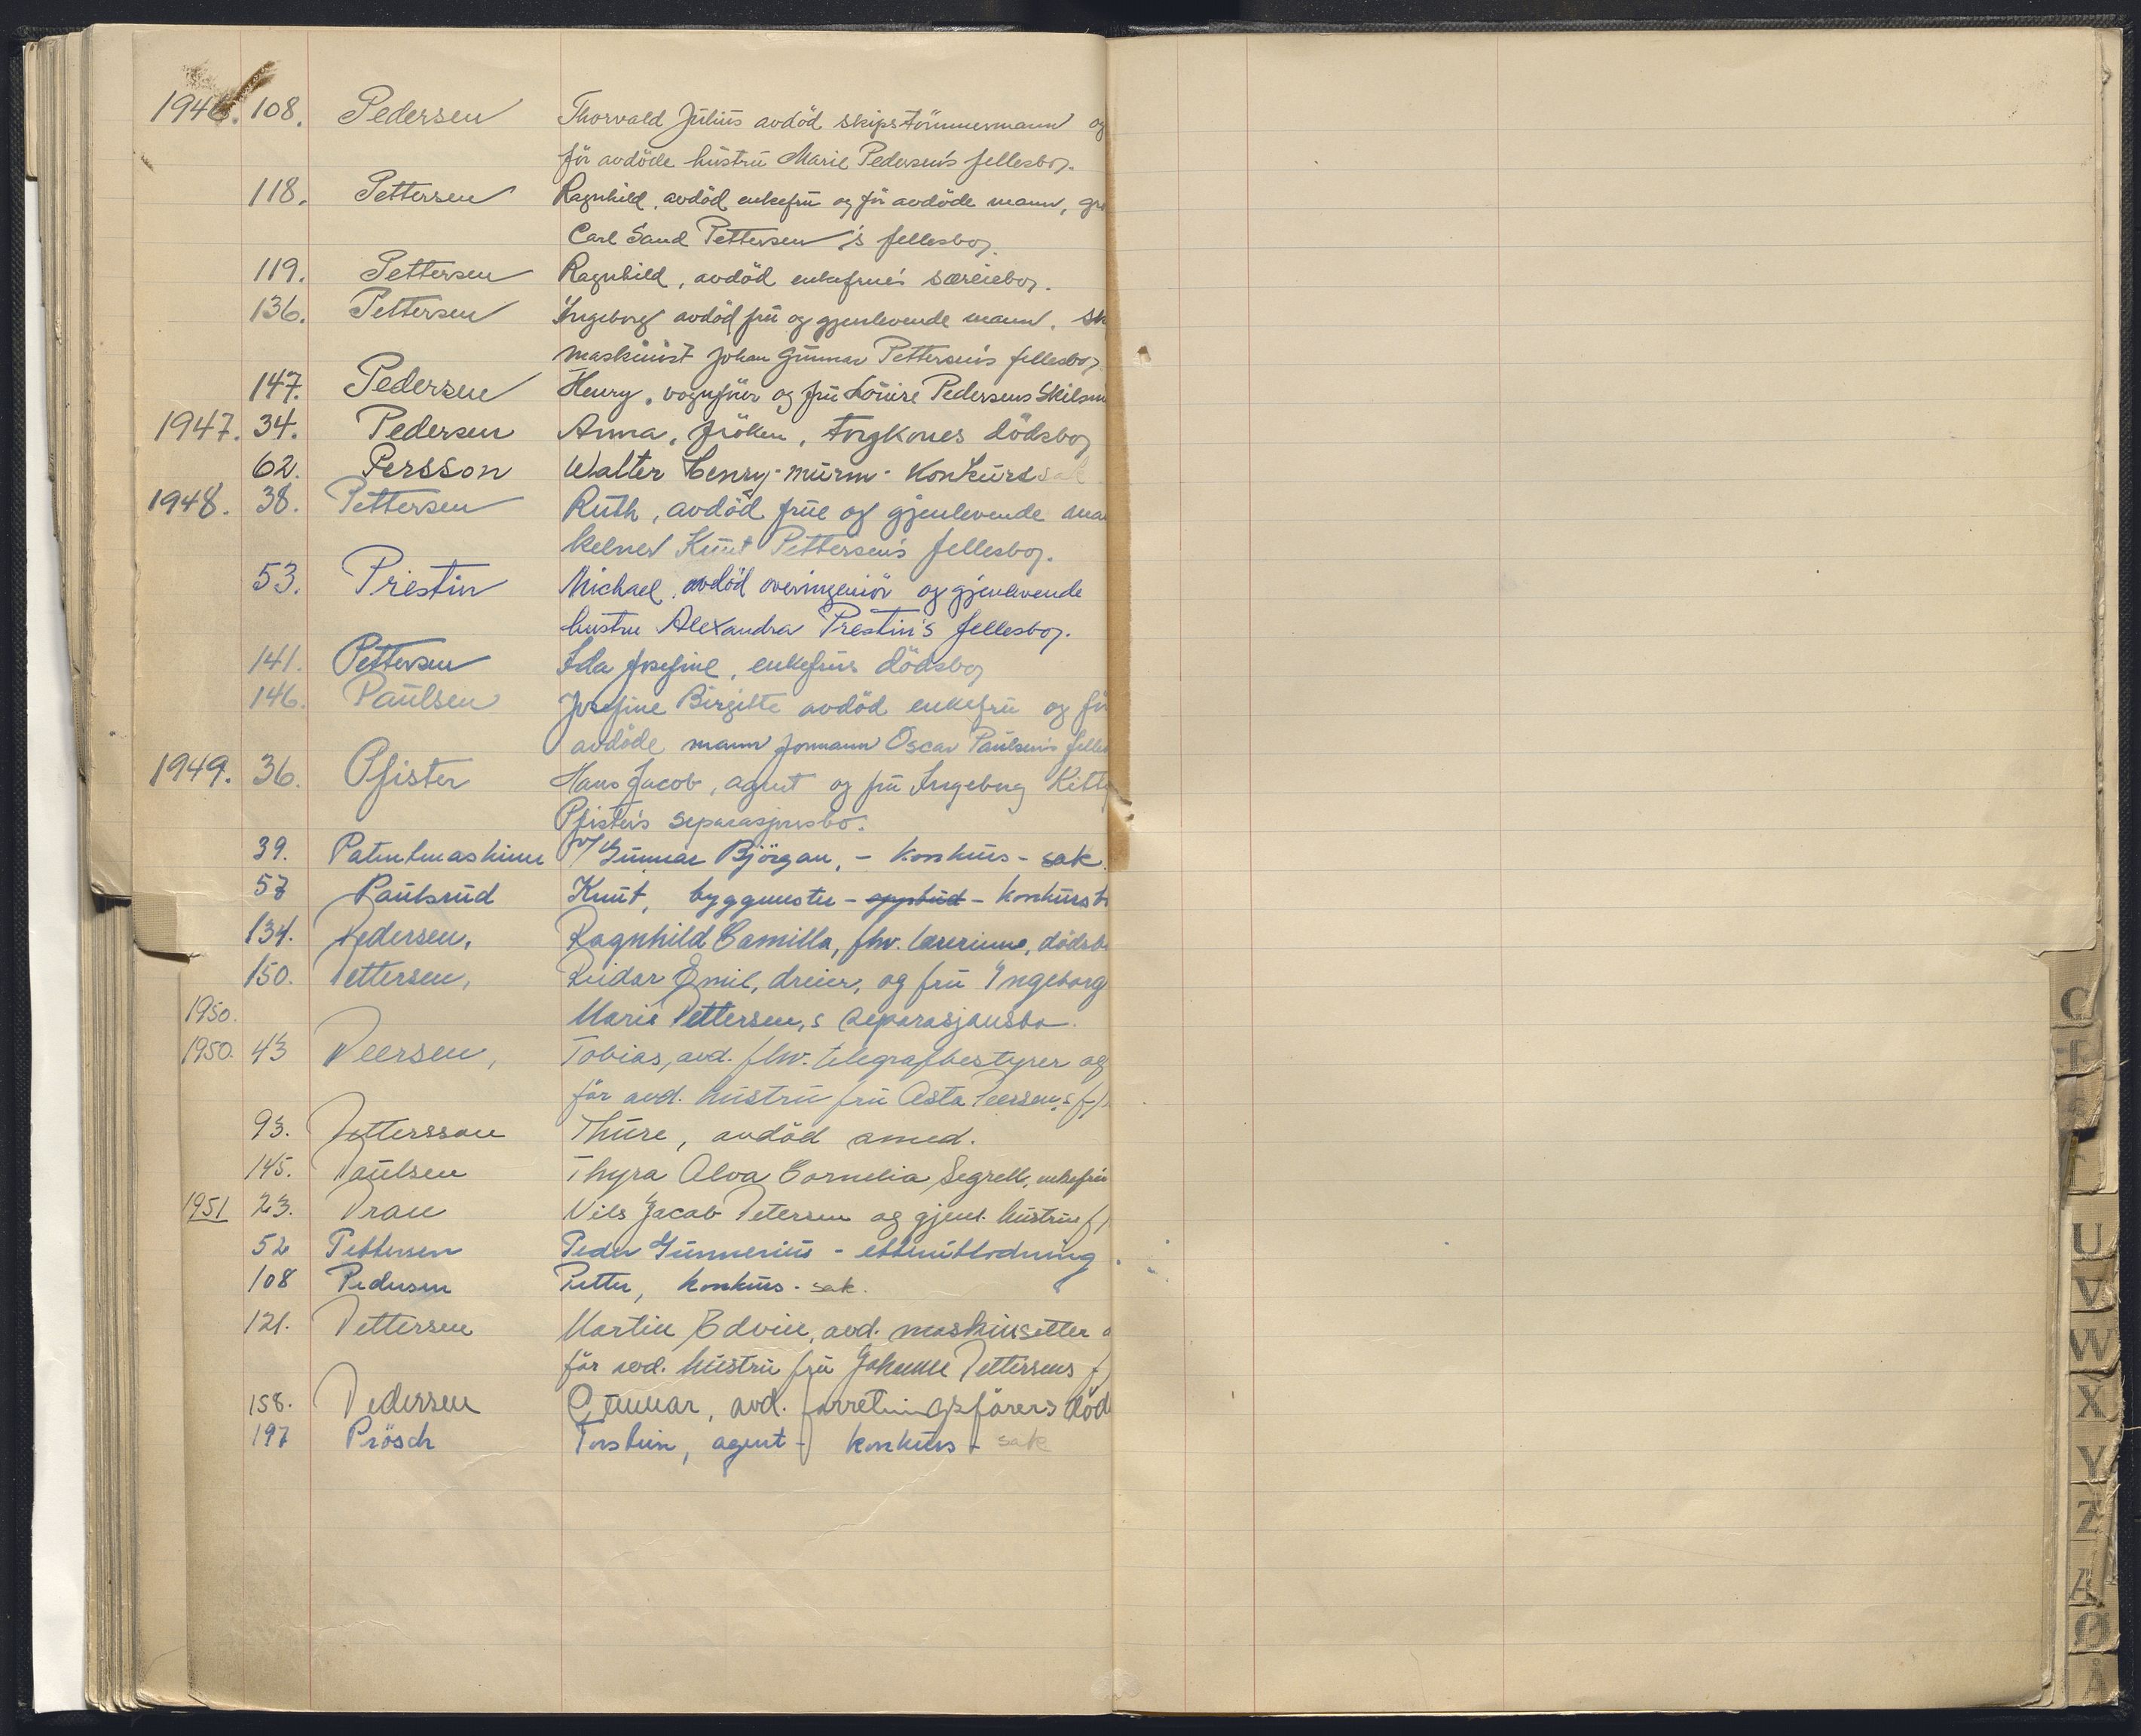 1946. 108. Pedersen Thorvald Julius avdöd skipstömmermann og
för avdöde hustru Marie Pedersen's fellesboj.
118. Pettersen Ragnhild, avdöd enkefru og för avdöde mann,
Carl Sand Pettersen's fellesboj.
119. Pettersen Ragnhild, avdöd enkefrue's særeieboj.
136. Pettersen Ingeborg avdöd fru og gjenlevende mann,
maskinist Johan Gunnar Pettersen's fellesboj
147. Pedersen Henry, vognfører og fru Louise Pedersens
1947. 34. Pedersen Anna, fröken, torgkones dödsboj
62. Persson Walter Henry - murm - Konkurssak
1948. 38. Pettersen Ruth, avdöd frue og gjenlevende
kelner Knut Pettersen's fellesboj.
53. Prestin Michael, avdöd overingeniör og gjenlevende
hustru Alexandra Prestin's fellesboj.
141. Pettersen Ida Josefine, enkefrus dödsboj
146. Paulsen Josefine Birgitte avdöd enkefru og för
avdöde mann formann Oscar Paulsen's
1949. 36. Pfister Hans Jacob, agent og fru Ingeborg Kitty
Pfister's separasjonsbo.
39. Patentmaskiner v/ Gunnar Björgan, - konkurs - sak.
57 Paulsrud Knut, byggmester - oppbud - konkurs
134. Pedersen, Ragnhild Camilla, fhv. lærerinne,
150. Pettersen, Reidar Emil, dreier, og fru Ingeborg
1950. Marie Pettersen,s separasjonsbo.
1950. 43 Peersen, Tobias, avd. fhv. telegrafbestyrer og
för avd. hustru fru Asta Peersen,s f/b
93. Pettersson Thure, avdöd smed.
145. Paulsen Thyra Alva Cornelia Segrell, enkefru
1951 23. Prau Nils Jacob Petersen og gjenl. hustrus f/
52 Pettersen Peder Gunnerius - etterutlodning.
108 Pedersen Petter, konkurs - sak.
121. Pettersen Martin Edvin, avd. maskinsetter
för avd. hustru fru Johanne Pettersens f/
158. Pedersen Gunnar, avd. forretningsförers död
197 Prösch Torstein, agent - konkurs - sak
C
T
U
V
W
X
Y
Z
Æ
Ø
Å